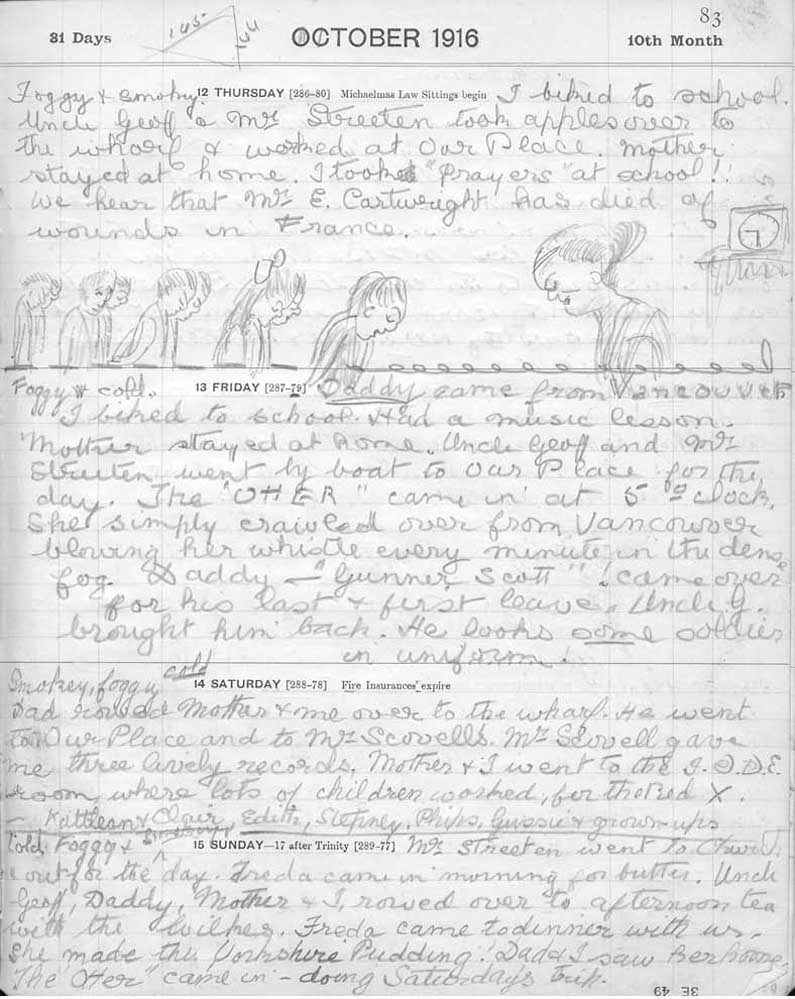 83
145
144
31 Days
OCTOBER 1916
10th Month
Foggy & smoky. 12 THURSDAY [286-80] Michaelmas Law Sittings begin I biked to school.
Uncle Geoff & Mr Streeten took apples over to
the wharf & worked at Our Place. Mother
stayed at home. I took "Prayers" at school!!
We hear that Mr E. Cartwright has died of
wounds in France.
Foggy & cold. 13 FRIDAY [287-79] Daddy came from Vancouver
I biked to school. Had a music lesson.
Mother stayed at home. Uncle Geoff and Mr
Streeten went by boat to Our Place for the
day. The "OTTER" came in at 5 o'clock.
She simply crawled over from Vancouver
blowing her whistle every minute in the dense
fog. Daddy — "Gunner Scott"! came over
for his last & first leave. Uncle G.
brought him back. He looks some soldier
in uniform!
Smokey, foggy cold 14 SATURDAY [288-78] Fire Insurances expire
Dad rowed Mother & me over to the wharf. He went
to Our Place and to Mr Scovells. Mr Scovell gave
me three lovely records. Mother & I went to the I.O.D.E.
room where lots of children worked, for the Red X.
— Kathleen & Clair, Edith, Stefney, Phips, Gussie & grown-ups
Cold. Foggy & 15 SUNDAY—17 after Trinity [289-77] Mr Streeten went to Church
& out for the day. Freda came in morning for butter. Uncle
Geoff, Daddy, Mother & I rowed over to afternoon tea
with the Wilkes. Freda came to dinner with us.
She made the Yorkshire Pudding! Dad & I saw her home.
The "Otter" came in - doing Saturdays trip.
3E 49